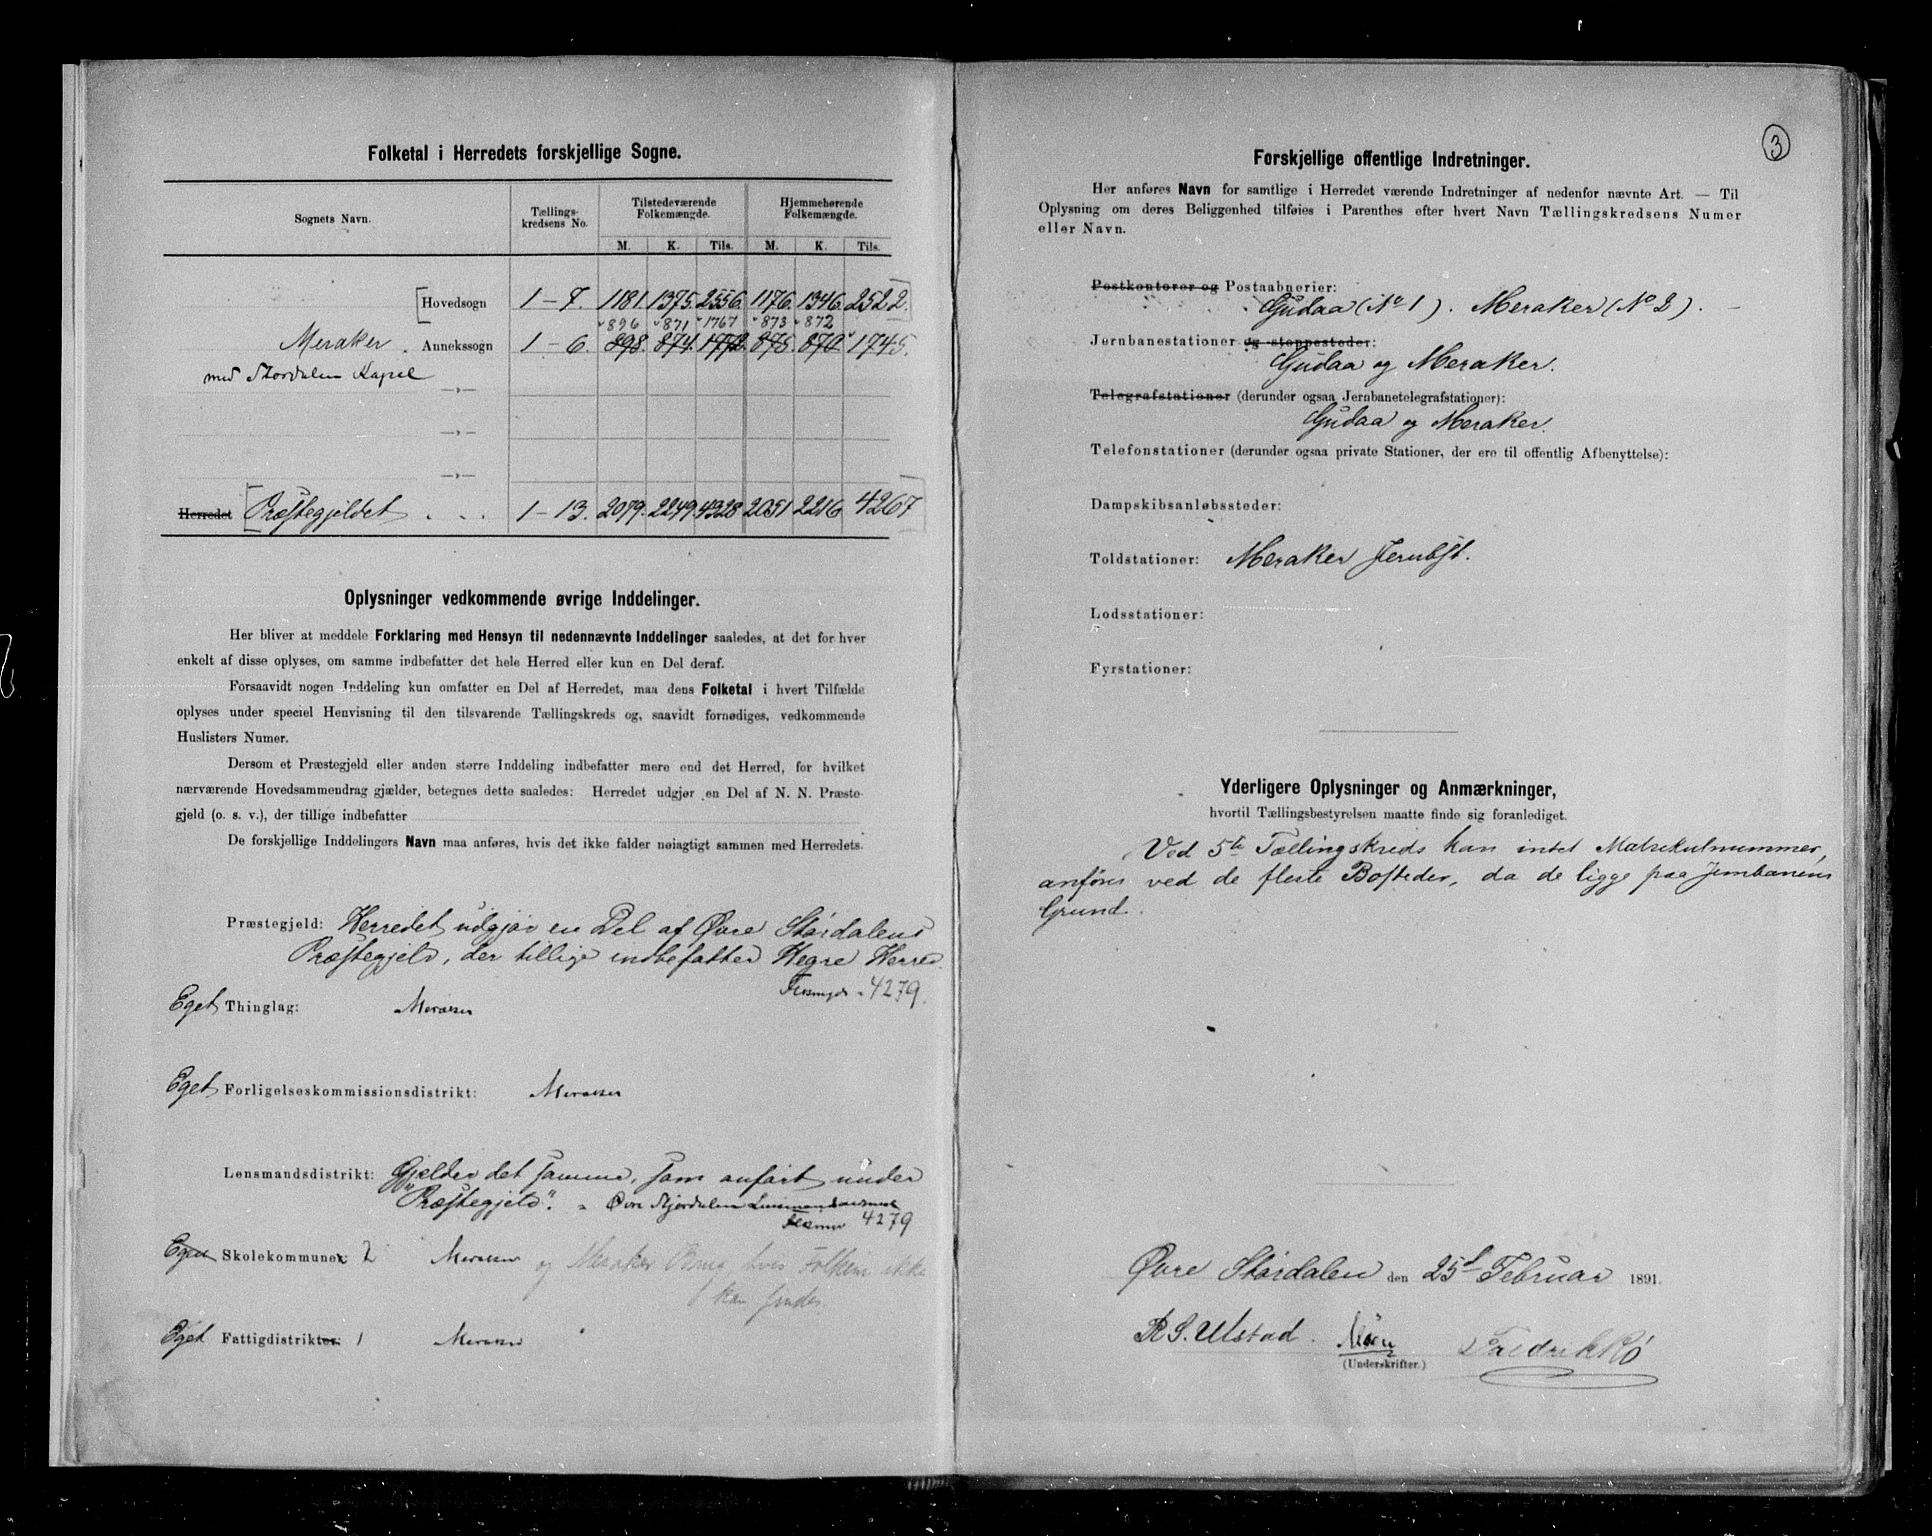 Folketal i Herredets forskjellige Sogne.
Sognets Navn. Tællings-kredsens No. Tilstedeværende Folkemængde. Hjemmehørende Folkemængde.
M. K. Tils. M. K. Tils.
[Hovedsogn 1 - 7. 1181. 1375. 2556. 1176. 1346. 2522.]
896 871 1767 873 872
Meraker. Annekssogn 1 - 6. 898. 874. 1772. 875. 870. 1745.
med Stordalen Kapel —»—
—»—
—»—
Herredet [Præstegjeldet . . . 1 - 13. 2079. 2249. 4328 2051 2216 4267]
Oplysninger vedkommende øvrige Inddelinger.
Her bliver at meddele Forklaring med Hensyn til nedennævnte Inddelinger saaledes, at det for hver
enkelt af disse oplyses, om samme indbefatter det hele Herred eller kun en Del deraf.
Forsaavidt nogen Inddeling kun omfatter en Del af Herredet, maa dens Folketal i hvert Tilfælde
oplyses under speciel Henvisning til den tilsvarende Tællingskreds og, saavidt fornødiges, vedkommende
Huslisters Numer.
Dersom et Præstegjeld eller anden større Inddeling indbefatter mere end det Herred, for hvilket
nærværende Hovedsammendrag gjælder, betegnes dette saaledes: Herredet udgjør en Del af N. N. Præste-
gjeld (o. s. v.), der tillige indbefatter
De forskjellige Inddelingers Navn maa anføres, hvis det ikke falder nøiagtigt sammen med Herredets.
Præstegjeld: Herredet udgjør en Del af Øvre Størdalens
Præstegjeld, der tillige indbefatter Hegre Herred.
4279.
Eget Thinglag: Meraker
Eget Forligelseskommissionsdistrikt: Meraker
Lensmandsdistrikt: Gjælder det samme, som anført under
"Præstegjeld".
4279
Eget Skolekommuner: 2 Meraker og Meraker Brug, hvis Folkem. ikke
kan findes.
Eget Fattigdistrikter: 1 Meraker
3
Forskjellige offentlige Indretninger.
Her anføres Navn for samtlige i Herredet værende Indretninger af nedenfor nævnte Art. — Til
Oplysning om deres Beliggenhed tilføies i Parenthes efter hvert Navn Tællingskredsens Numer
eller Navn.
Postkontorer og Postaabnerier:
Gudaa (No 1). Meraker (No 2).
Jernbanestationer og stoppesteder:
Gudaa og Meraker.
Telegrafstationer (derunder ogsaa Jernbanetelegrafstationer):
Gudaa og Meraker.
Telefonstationer (derunder ogsaa private Stationer, der ere til offentlig Afbenyttelse):
Dampskibsanløbssteder:
Toldstationer: Meraker Jernbst.
Lodsstationer:
Fyrstationer:
Yderligere Oplysninger og Anmærkninger,
hvortil Tællingsbestyrelsen maatte finde sig foranlediget.
Ved 5te Tællingskreds kan intet Matrekulnummer,
anføres ved de fleste Bosteder, da de ligge paa Jernbanens
Grund.
Øvre Størdalen den 25d Februar 1891.
R S. Ulstad. Fredrik Rø
(Underskrifter.)